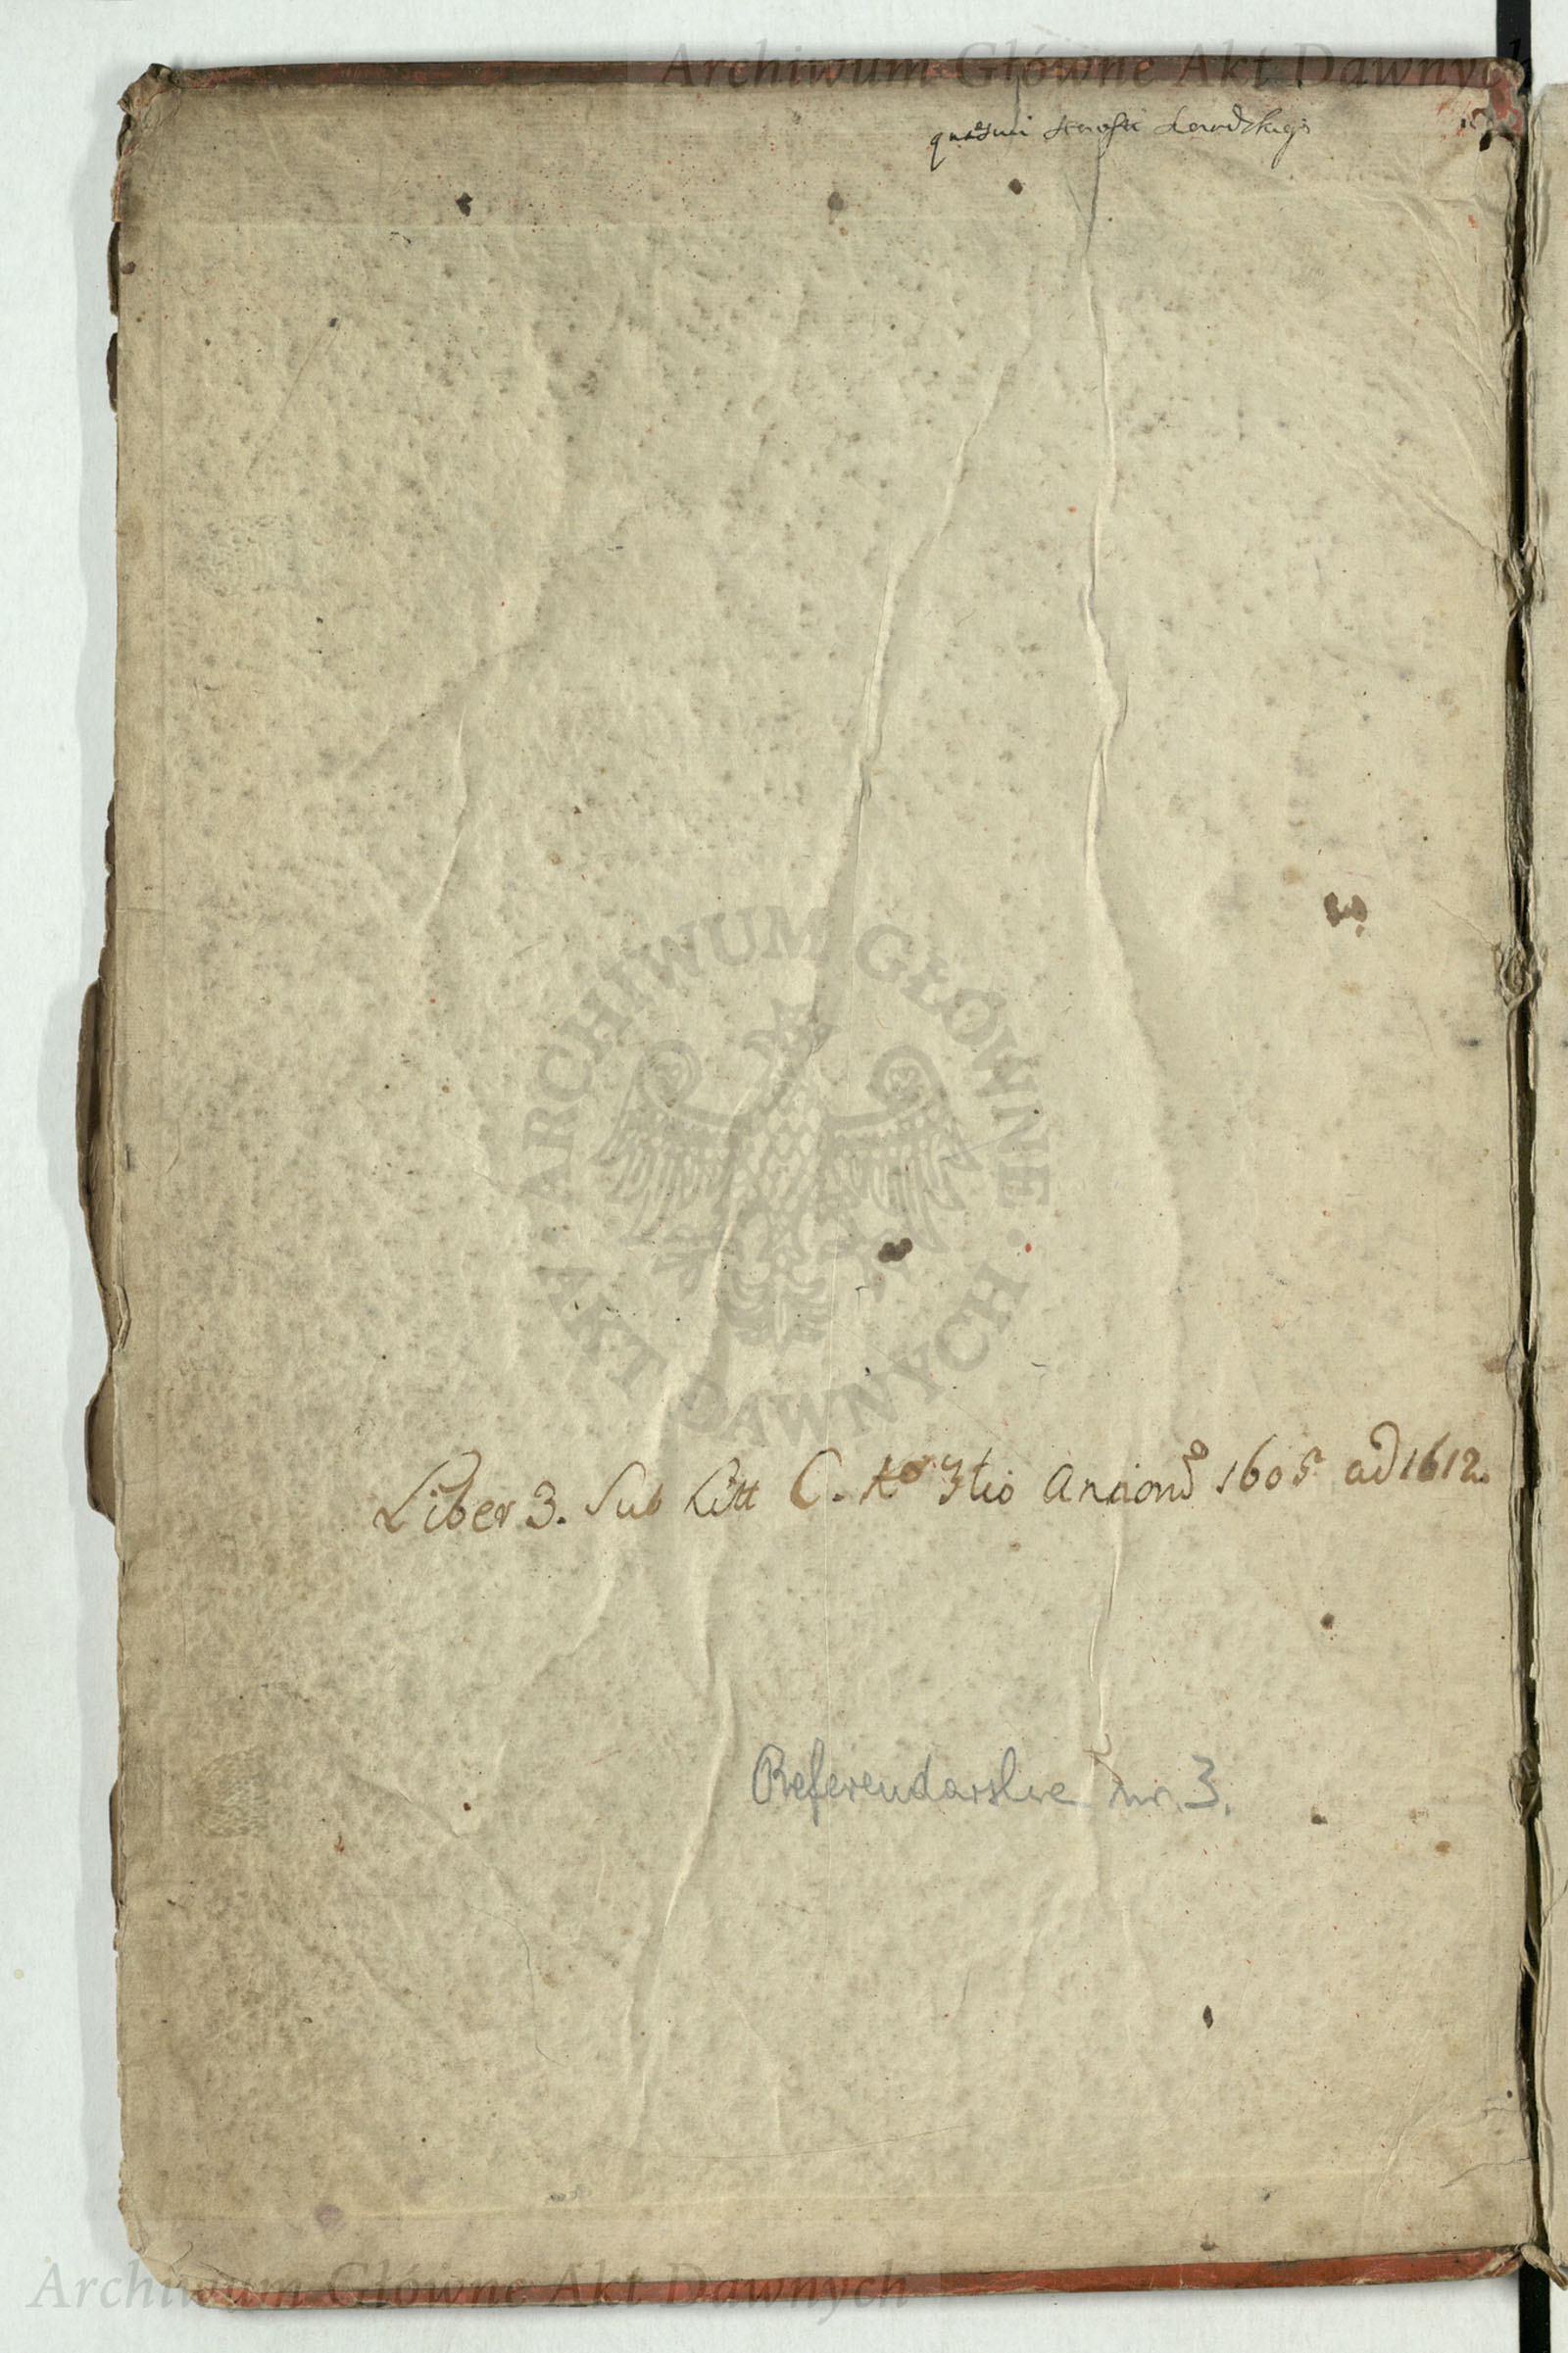 Archiwum Główne Akt Dawnych
Liber 3. Sub Litt C. 3tio 1605 ad 1612.
ARCHIWUM GŁÓWNE · AKT DAWNYCH ·
Referendarskie nr. 3.
Archiwum Główne Akt Dawnych